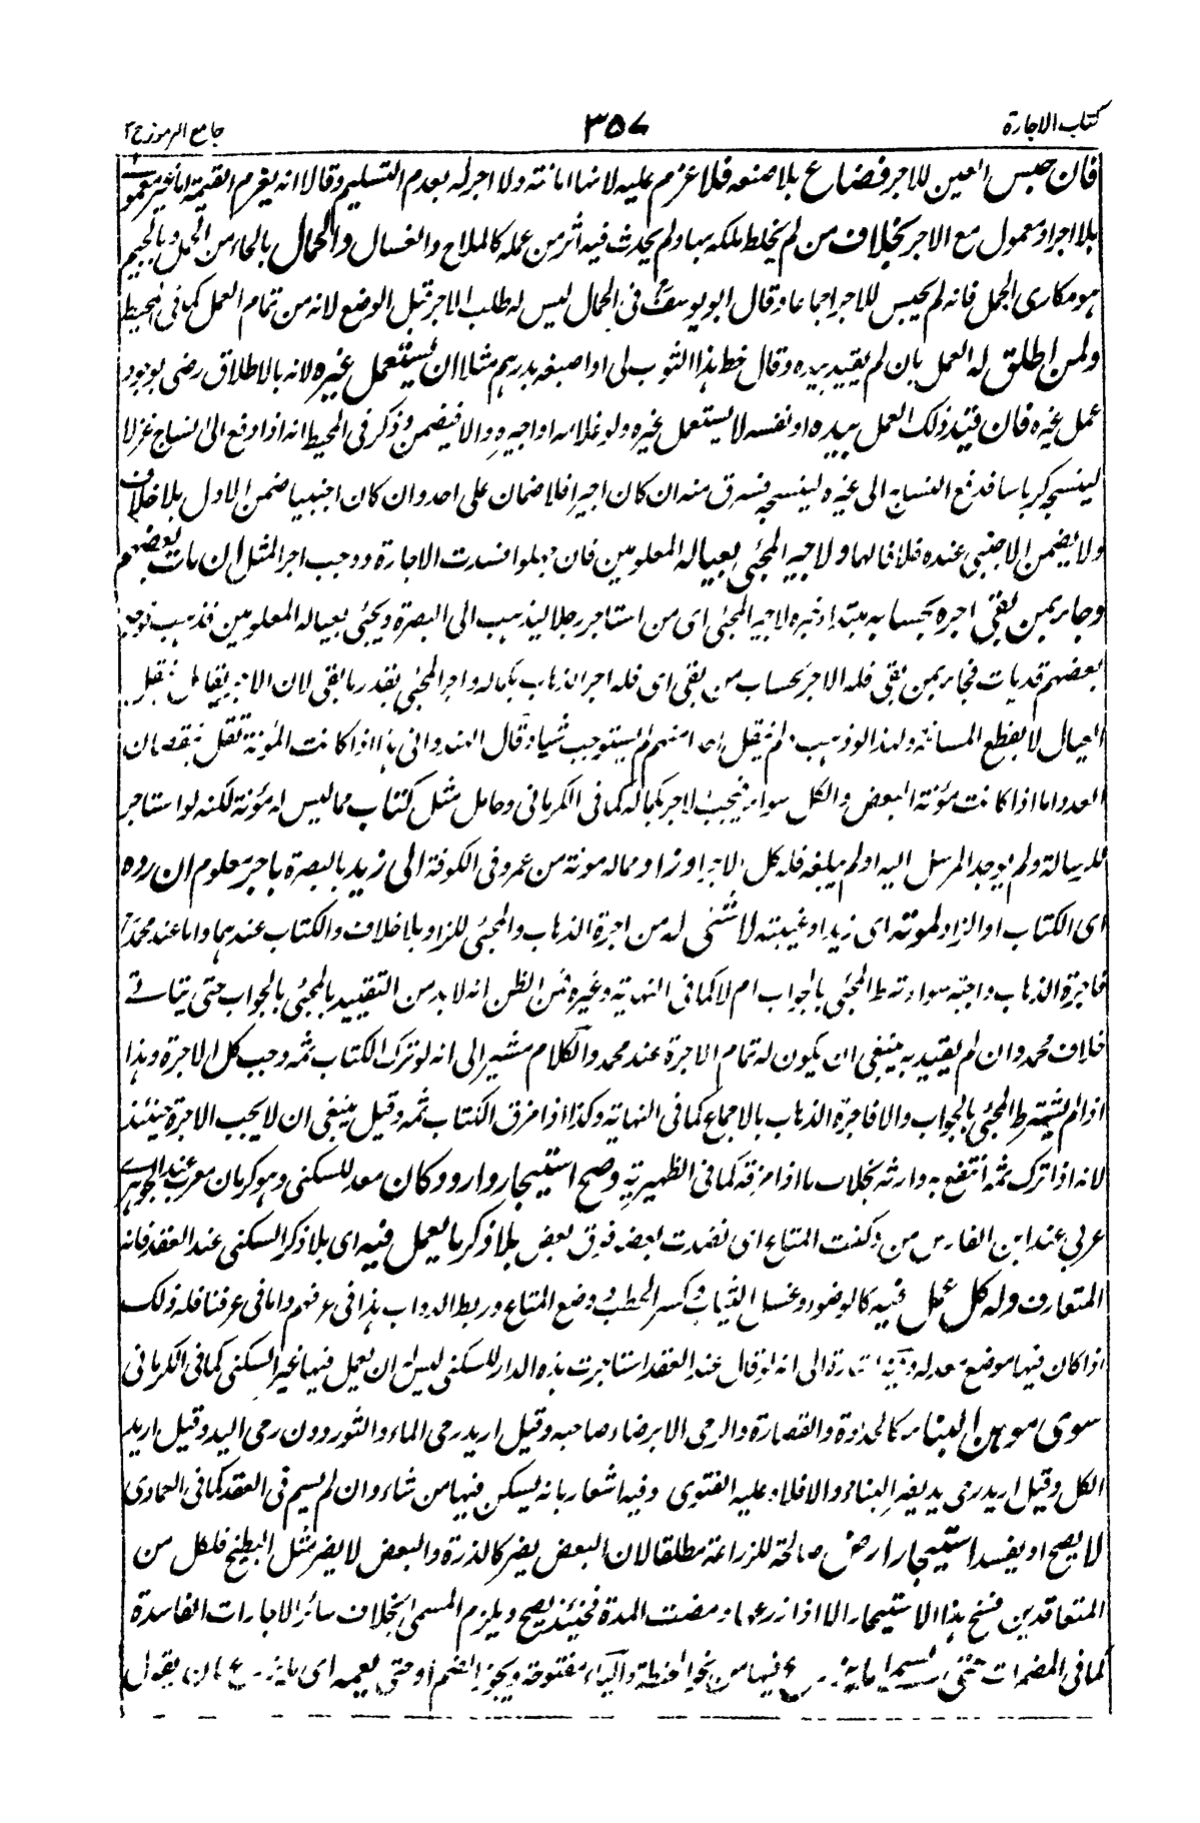 كتاب الاجارة
٣٥٧
جامع الرموز ج ٢
فان حبس العين للاجر فضاع بلا صنعه فلا غرم عليه لانها امانته ولا اجر له بعدم التسليم وقالا انه يغرم القيمة اما غير معمول
بلا اجر او معمول مع الاجر بخلاف من لم يخلط ملكه بها ولم يحدث فيه اثر من عمله كالملاح والغسال والحمال بالحاء من الحمل وبالجيم
هو مكارى الجمل فانه لم يحبس للاجر اجماعا وقال ابو يوسف فى الحمال ليس له طلب الاجر قبل الوضع لانه من تمام العمل كما فى المحيط
ولمن اطلق له العمل بان لم يقيد بيده وقال خط هذا الثوب لى او اصبغه بدرهم مثلا ان يستعمل غيره لانه بالاطلاق رضى بوجود
عمل غيره فان قيد ذلك العمل بيده او نفسه لا يستعمل غيره ولو غلامه او اجيره والا فيضمن وذكر فى المحيط انه اذا دفع الى نساج غزلا
لينسج كرباسا فدفع النساج الى غيره لينسجه فسرق منه ان كان اجيرا فلا ضمان على احد وان كان اجنبيا ضمن الاول بلا خلاف
ولا يضمن الاجنبى عنده خلافا لهما ولاجير المجئ بعياله المعلومين فان جهلوا فسدت الاجارة ووجب اجر المثل ان مات بعضهم
وجاء بمن بقى اجره بحسابه مبتدا خبره لاجير المجئ اى من استاجر رجلا ليذهب الى البصرة ويجئ بعياله المعلومين فذهب فوجد
بعضهم قد مات فجاء بمن بقى فله الاجر بحساب من بقى اى فله اجر الذهاب بكماله واجر المجئ بقدر ما بقى لان الاجر يقابل نقل
العيال لا بقطع المسافة ولهذا لو ذهب ولم ينقل احدا منهم لم يستوجب شيا وقال الهندوانى هذا اذا كانت المؤنة تقل بنقصان
العدد واما اذا كانت مؤنة البعض والكل سواء فيجب الاجر بكماله كما فى الكرمانى وحامل مثل كتاب مما ليس له مؤنة لكنه لو استاجر
للرسالة ولم يوجد المرسل اليه او لم يبلغه فله كل الاجر او زاد مما له مونة من عمرو فى الكوفة الى زيد بالبصرة باجر معلوم ان رده
اى الكتاب او الزاد لموته اى زيد او غيبته لا شئ له من اجرة الذهاب والمجئ للزاد بلا خلاف والكتاب عندهما واما عند محمد
فاجرة الذهاب واجبة سواء شرط المجئ بالجواب ام لا كما فى النهاية وغيره فمن الظن انه لا بد من التقييد بالمجئ بالجواب حتى يتاتى
خلاف محمد وان لم يقيد به ينبغى ان يكون له تمام الاجرة عند محمد والكلام مشير الى انه لو ترك الكتاب ثمه وجب كل الاجرة وهذا
اذا لم يشترط المجئ بالجواب والا فاجرة الذهاب بالاجماع كما فى النهاية وكذا اذا مزق الكتاب ثمه وقيل ينبغى ان لا يجب الاجرة حينئذ
لانه اذا ترك ثمه انتفع به وارثه بخلاف ما اذا مزقه كما فى الظهيرية وصح استيجار دار ودكان معد للسكنى وهو كرمان معرب عند الجوهرى
عربى عند ابن الفارس من دكنت المتاع اى نضدت بعضه فوق بعض بلا ذكر ما يعمل فيه اى بلا ذكر السكنى عند العقد فانه
المتعارف وله كل عمل فيه كالوضوء وغسل الثياب وكسر الحطب ووضع المتاع وربط الدواب هذا فى عرفهم واما فى عرفنا فله ذلك
اذا كان فيها موضع معد له وفيه اشارة الى انه لو قال عند العقد استاجرت هذه الدار للسكنى ليس له ان يعمل فيها غير السكنى كما فى الكرمانى
سوى موهن البناء كالحدادة والقصارة والرحى الا برضاء صاحبه وقيل اريد رحى الماء والثور دون رحى اليد وقيل اريد
الكل وقيل اريد رحى يد يضر البناء والا فلا وعليه الفتوى وفيه اشعار بانه يسكن فيها من شاء وان لم يسم فى العقد كما فى العمادى
لا يصح او يفسد استيجار ارض صالحة للزراعة مطلقا لان البعض يضر كالذرة والبعض لا يضر مثل البطيخ فلكل من
المتعاقدين فسخ هذا الاستيجار الا اذا زرعها ومضت المدة فحينئذ يصح ويلزم المسمى بخلاف سائر الاجارات الفاسدة
كما فى المضمرات حتى يسمى ما يزرع فيها من نحو الحنطة والياء مفتوحة ويجوز الضم او حتى يعمه اى ما يزرع بان يقول